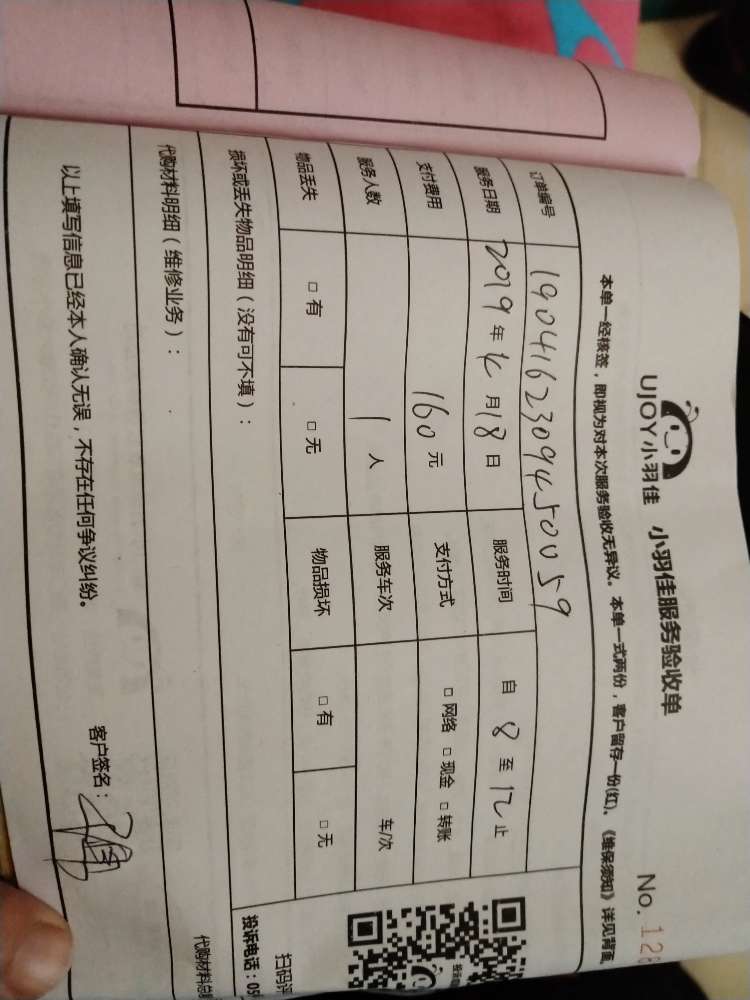 UJOY小羽佳 小羽佳服务验收单 No. 128
本单一经核签，即视为对本次服务验收无异议。本单一式两份，客户留存一份(红)。《维保须知》详见背面
订单编号 19041623094500059
服务日期 2019年4月18日 服务时间 自 8 至 12 止
支付费用 160元 支付方式 □网络 □现金 □转账
服务人数 1人 服务车次 车/次
物品丢失 □有 □无 物品损坏 □有 □无
损坏或丢失物品明细（没有可不填）：
扫码评
投诉电话：05
代购材料明细（维修业务）：
代购材料总
以上填写信息已经本人确认无误，不存在任何争议纠纷。
客户签名：